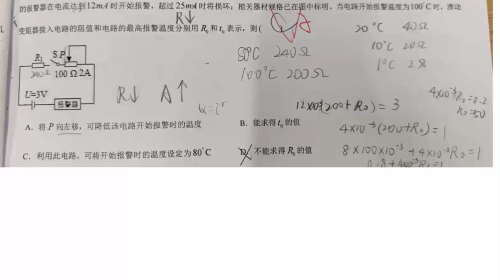 的报警器在电流达到12mA时开始报警,超过25mA时将损坏,相关器材规格已在图中标明,当电路开始报警温度为100℃时,滑动
变阻器接入电路的阻值和电路的最高报警温度分别用R₀和t₀表示,则(
R↓
20℃ 40Ω
10℃ 20Ω
1℃ 2Ω
50℃ 240Ω
100℃ 200Ω
R₁ S P
240Ω 100Ω 2A
U=3V
报警器
R↓ A↑
12×10⁻³(200+R₀)=3
4×10⁻³R₀=0.2
R₀=50
4×10⁻³(200+R₀)=1
8×100×10⁻³+4×10⁻³R₀=1
A.将P向左移,可降低该电路开始报警时的温度
B.能求得t₀的值
C.利用此电路,可将开始报警时的温度设定为80℃
D.不能求得R₀的值